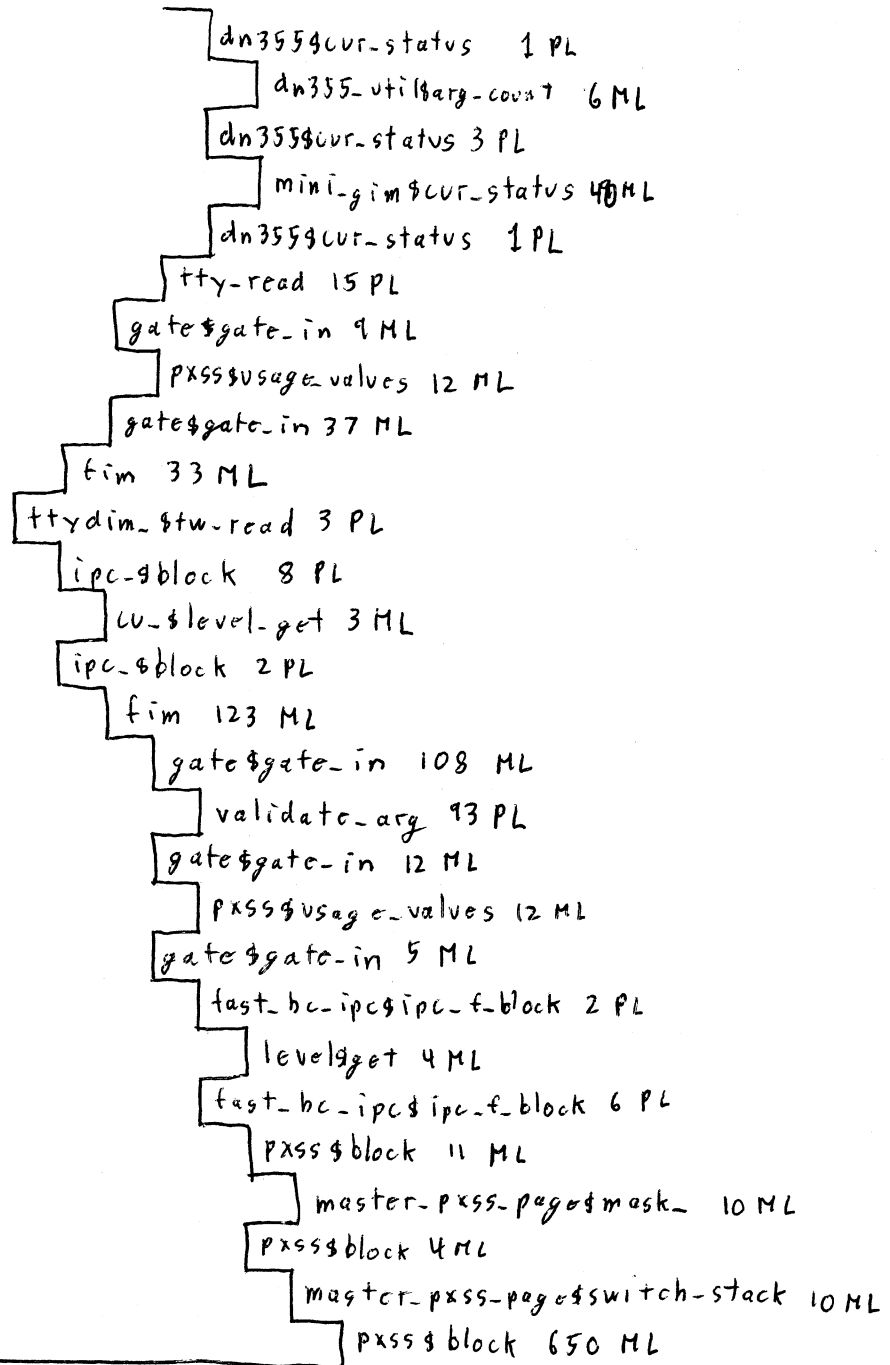 dn355$cur_status 1 PL
dn355_util$arg_count 6 ML
dn355$cur_status 3 PL
mini_gim$cur_status ML
dn355$cur_status 1 PL
tty_read 15 PL
gate$gate_in 9 ML
pxss$usage_values 12 ML
gate$gate_in 37 ML
fim 33 ML
ttydim_$tw_read 3 PL
ipc_$block 8 PL
cu_$level_get 3 ML
ipc_$block 2 PL
fim 123 ML
gate$gate_in 108 ML
validate_arg 93 PL
gate$gate_in 12 ML
pxss$usage_values 12 ML
gate$gate_in 5 ML
fast_hc_ipc$ipc_f_block 2 PL
level$get 4 ML
fast_hc_ipc$ipc_f_block 6 PL
pxss$block 11 ML
master_pxss_page$mask_ 10 ML
pxss$block 4 ML
master_pxss_page$switch_stack 10 ML
pxss$block 650 ML